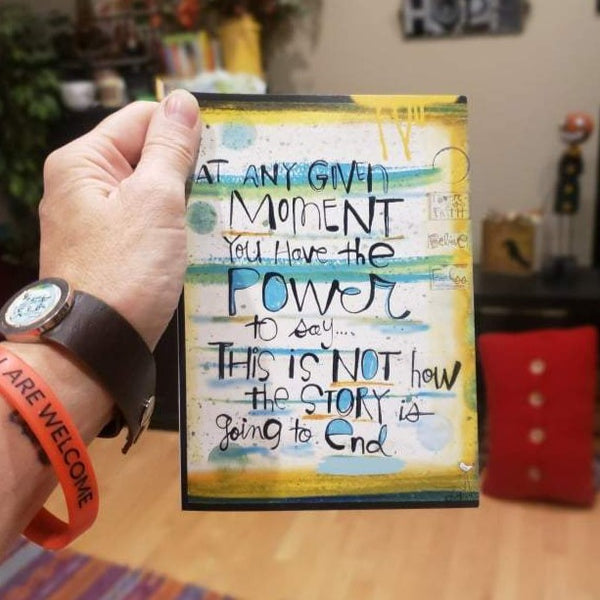 HOPE
AT ANY GIVEN
MOMENT
You Have the
POWer
to say....
THIS iS NOT how
the STORY is
going to end
Believe
ARE WELCOME